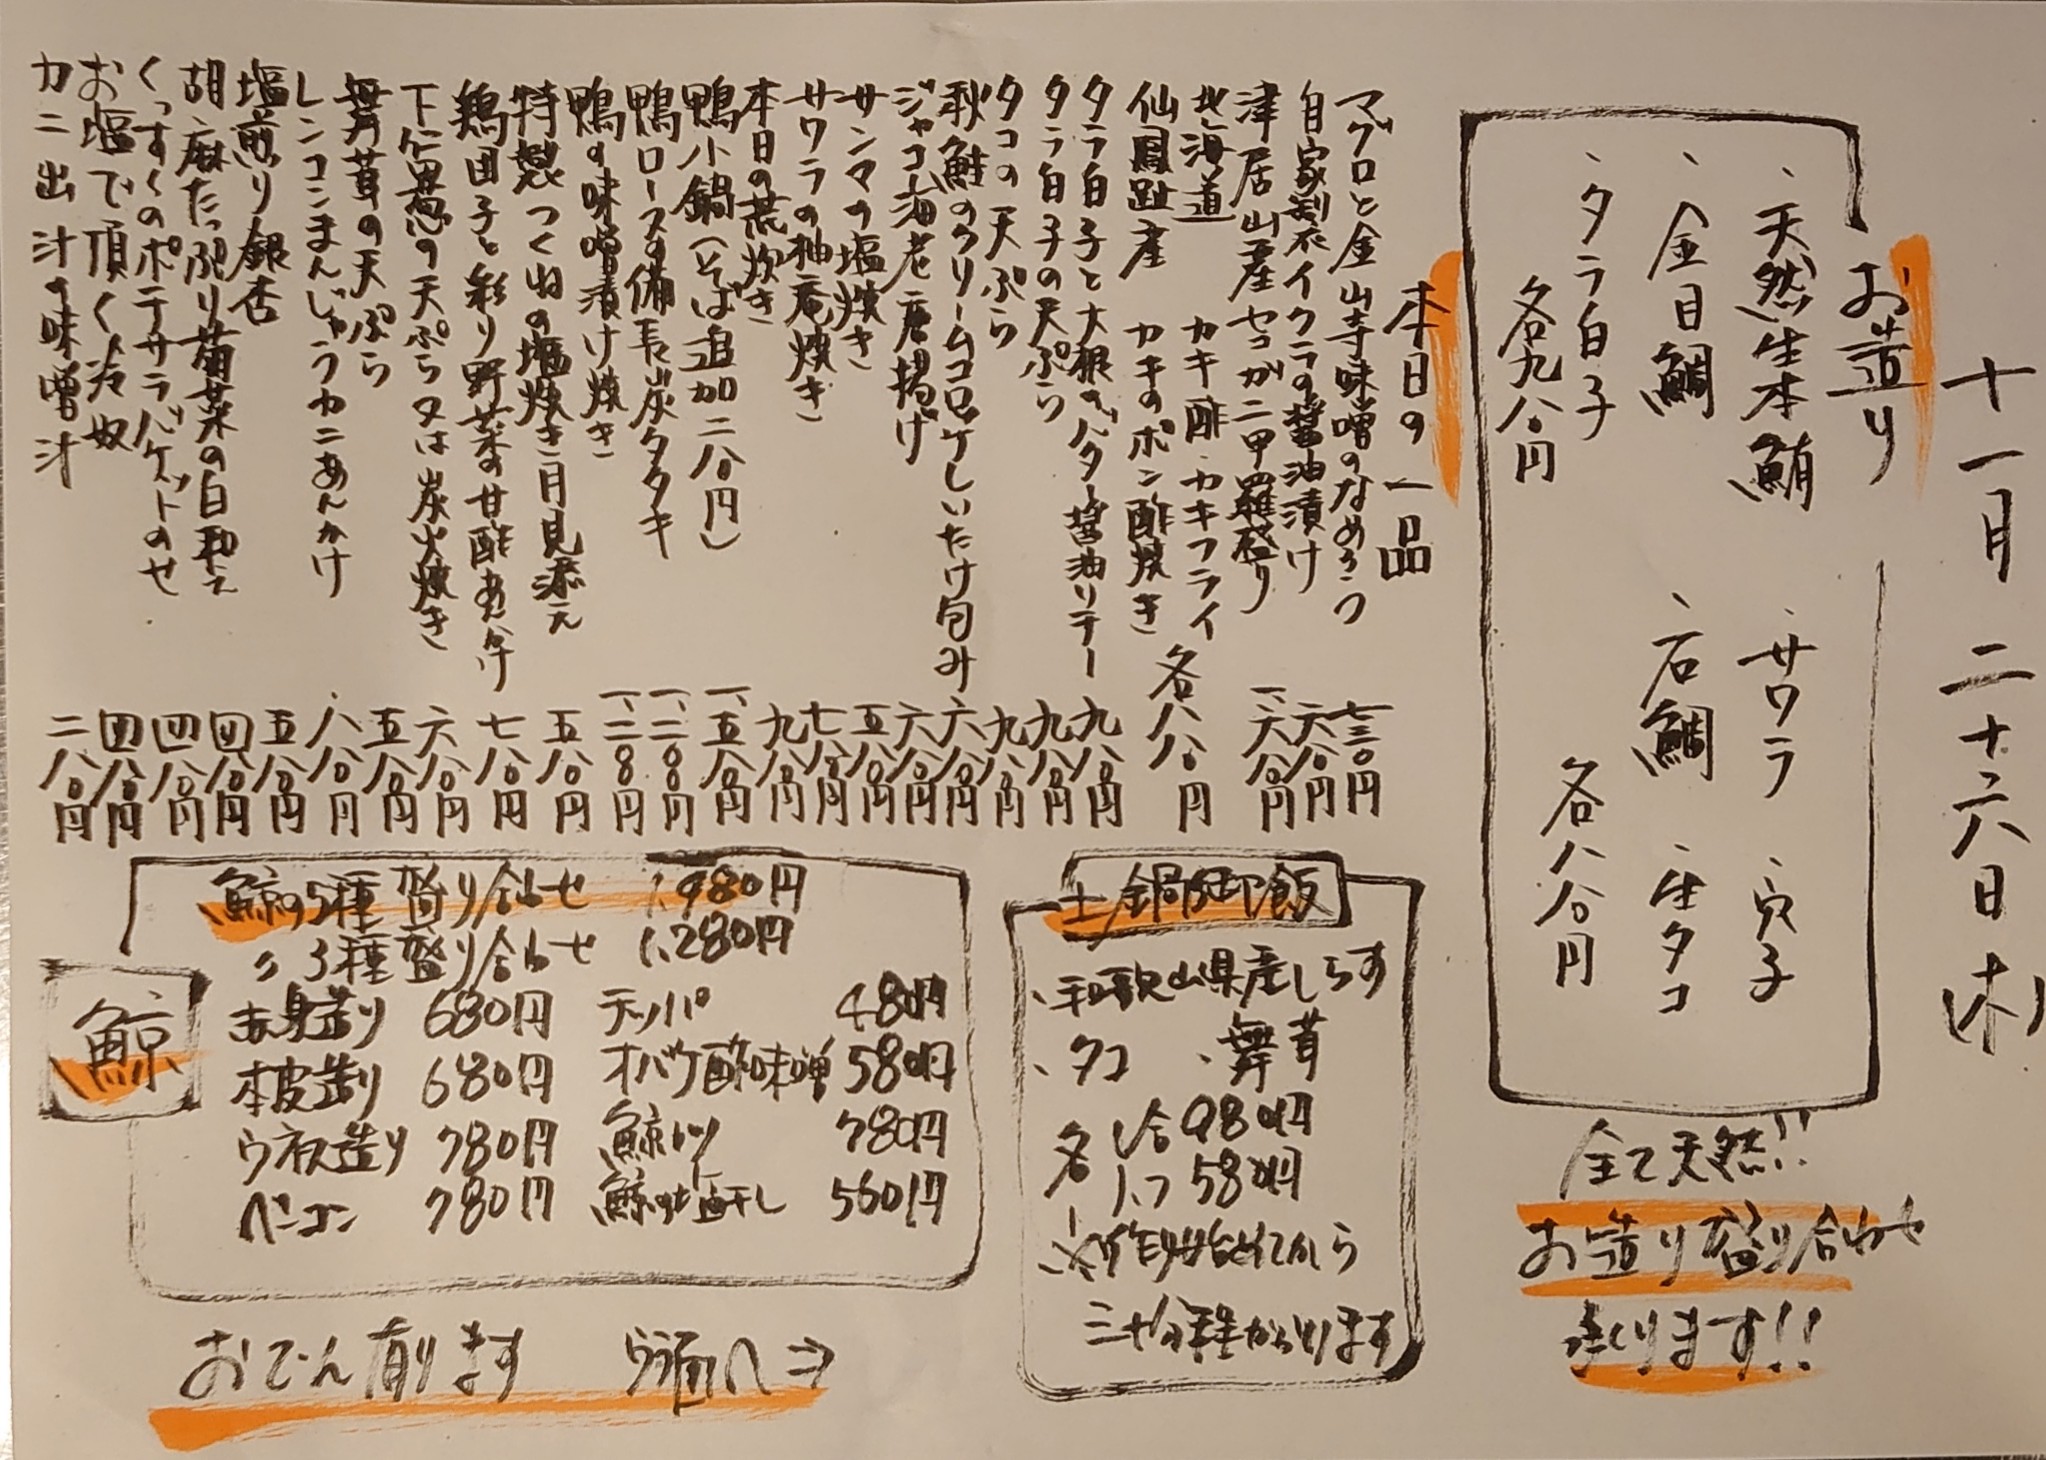 十一月二十六日(木)
お造り
、天然生本鮪 、サワラ 、穴子
、金目鯛 、石鯛 、生タコ
、タラ白子
各九八〇円 各八八〇円
全て天然!!
お造り盛り合わせ
承ります!!
本日の一品
マグロと金山寺味噌のなめろう 七三〇円
自家製イクラの醤油漬け 六八〇円
津居山産セコガニ甲羅盛り 一、六八〇円
北海道 カキ酢・カキフライ
仙鳳趾産 カキのポン酢焼き 各八八〇円
タラ白子と大根のバター醤油ソテー 九八〇円
タラ白子の天ぷら 九八〇円
タコの天ぷら 九八〇円
秋鮭のクリームコロッケしいたけ旬み 六八〇円
ジャコ海老唐揚げ 六八〇円
サンマの塩焼き 五八〇円
サワラの柚庵焼き 七八〇円
本日の荒炊き 九八〇円
鴨小鍋(そば追加二八〇円) 一、五八〇円
鴨ロースの備長炭タタキ 一、二〇〇円
鴨の味噌漬け焼き 一、二八〇円
特製つくねの塩焼き月見添え 五八〇円
鶏団子と彩り野菜の甘酢あんかけ 七八〇円
下仁田葱の天ぷら又は炭火焼き 六八〇円
舞茸の天ぷら 五八〇円
レンコンまんじゅうカニあんかけ 八八〇円
塩煎り銀杏 五八〇円
胡麻たっぷり菊菜の白和え 四八〇円
くっすくのポテサラバゲットのせ 四八〇円
お塩で頂く冷奴 四八〇円
カニ出汁の味噌汁 二八〇円
土鍋御飯
、和歌山県産しらす
、タコ 、舞茸
各 一合 980円
ハーフ 580円
三十分程かかります
鯨
鯨の5種盛り合わせ 1,980円
〃 3種盛り合わせ 1,280円
赤身造り 680円 テッパ 480円
本皮造り 680円 オバケ酢味噌 580円
ウネス造り 780円 鯨カツ 780円
ベーコン 780円 鯨の塩干し 560円
おでん有ります ウラ面へ⇒